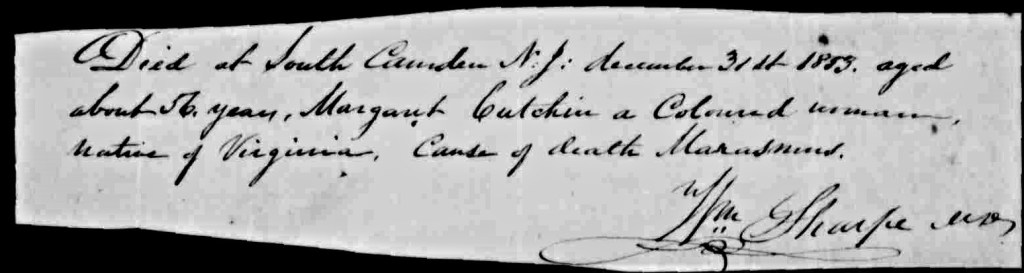 Died at South Camden N.J: december 31st 1853. aged
about 56. years, Margaret Cutchin a Coloured woman,
native of Virginia. Cause of death Marasmus.
Wm Sharpe MD